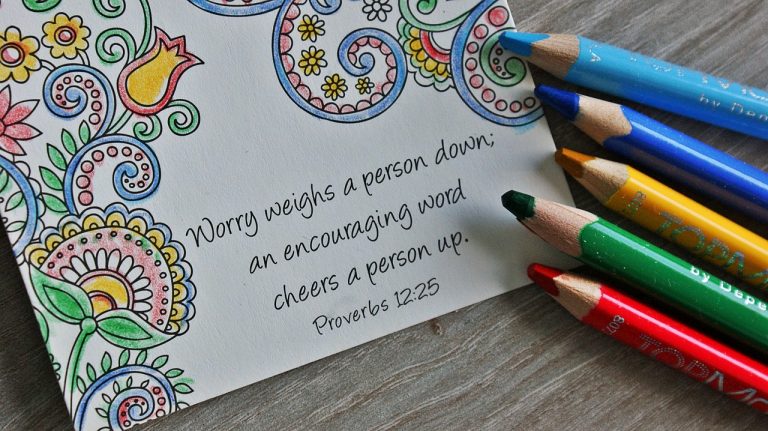 Worry weighs a person down;
an encouraging word
cheers a person up.
Proverbs 12:25
by Dep
TOPMO
by Depe
TOPMO